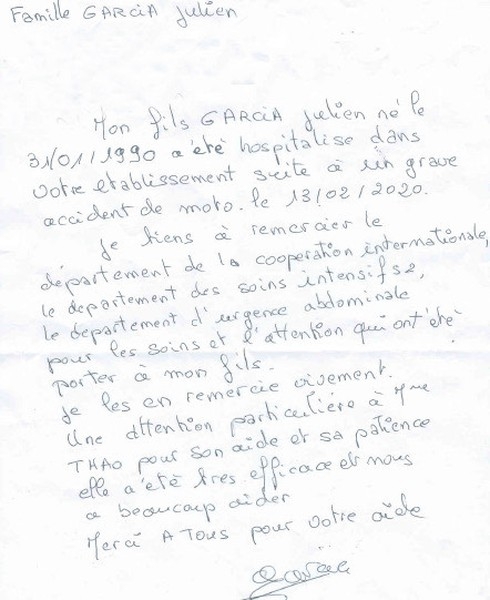 Famille GARCIA Julien
Mon fils GARCIA Julien né le
31/01/1990 a été hospitalise dans
votre etablissement suite à un grave
accident de moto. le 13/02/2020.
Je tiens à remercier le
département de la cooperation internationale,
le departement des soins intensifs 2,
le departement d'urgence abdominale
pour les soins et l'attention qui ont été
porter à mon fils.
Je les en remercie vivement.
Une attention particulière à Mme
THAO pour son aide et sa patience
elle a été tres efficace et nous
a beaucoup aider
Merci A TOUS pour votre aide
Garcia